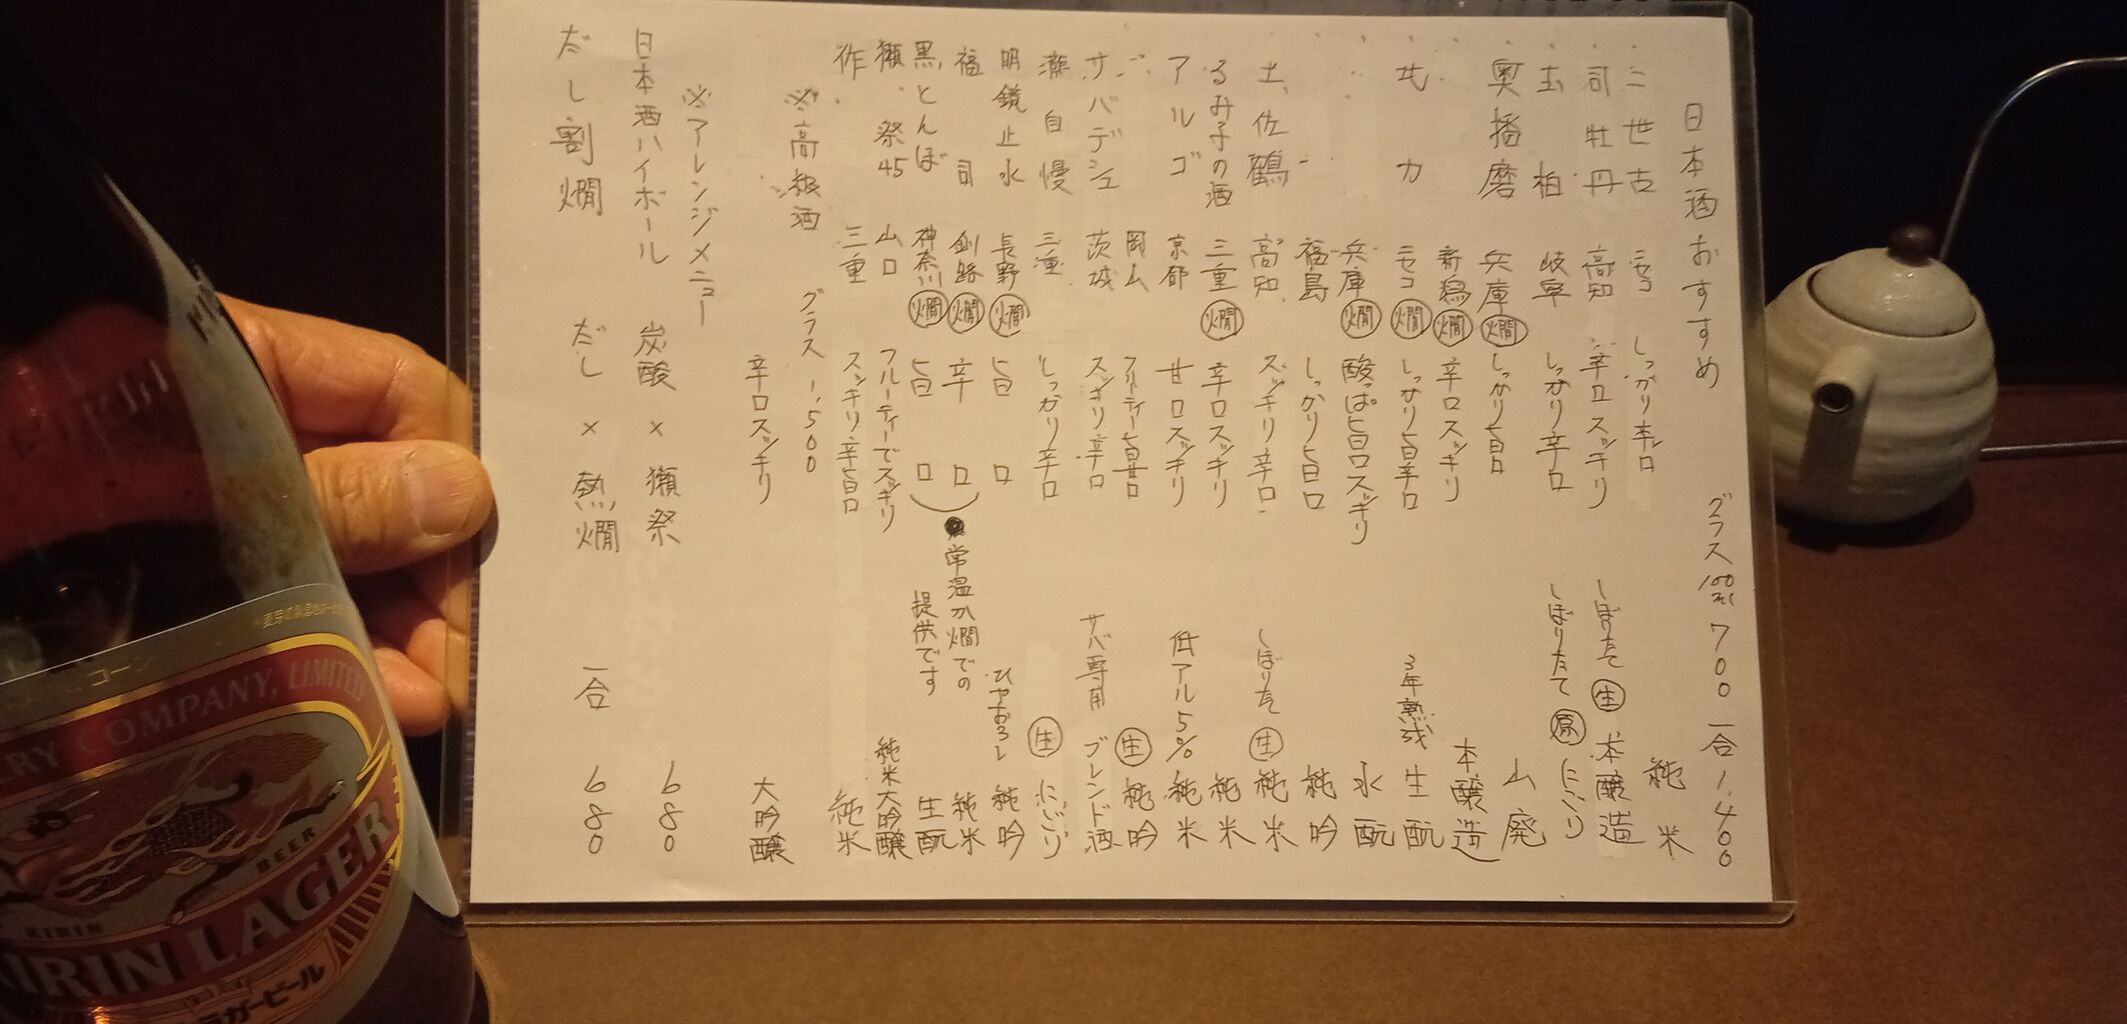 日本酒おすすめ グラス100ml 700 一合 1,400
二世古 ニセコ しっかり辛口 純米
司牡丹 高知 辛口スッキリ しぼりたて 生 本醸造
玉柏 岐阜 しっかり辛口 しぼりたて 原 にごり
奥播磨 兵庫 燗 しっかり旨口 山廃
〃 新潟 燗 辛口スッキリ 本醸造
ニセコ 燗 しっかり旨辛口 3年熟成 生酛
〃 兵庫 燗 酸っぱ旨口スッキリ 水酛
〃 福島 しっかり旨口 純吟
土佐鶴 高知 スッキリ辛口 しぼりたて 生 純米
るみ子の酒 三重 燗 辛口スッキリ 純米
アルゴ 京都 甘口スッキリ 低アル5% 純米
〃 岡山 フルーティー旨甘口 生 純吟
サバデシュ 茨城 スッキリ辛口 サバ専用 ブレンド酒
瀧自慢 三重 しっかり辛口 生 にごり
明鏡止水 長野 燗 旨口 ひやおろし 純吟
福司 釧路 燗 辛口 純米
黒とんぼ 神奈川 燗 旨口 生酛
●常温か燗での
提供です
獺祭45 山口 フルーティーでスッキリ 純米大吟醸
作 三重 スッキリ辛旨口 純米
※高級酒 グラス 1,500
辛口スッキリ 大吟醸
※アレンジメニュー
日本酒ハイボール 炭酸×獺祭 680
だし割燗 だし×熱燗 一合 680
コーン
BREWERY COMPANY, LIMITED
KIRIN BEER
KIRIN LAGER
ラガービール